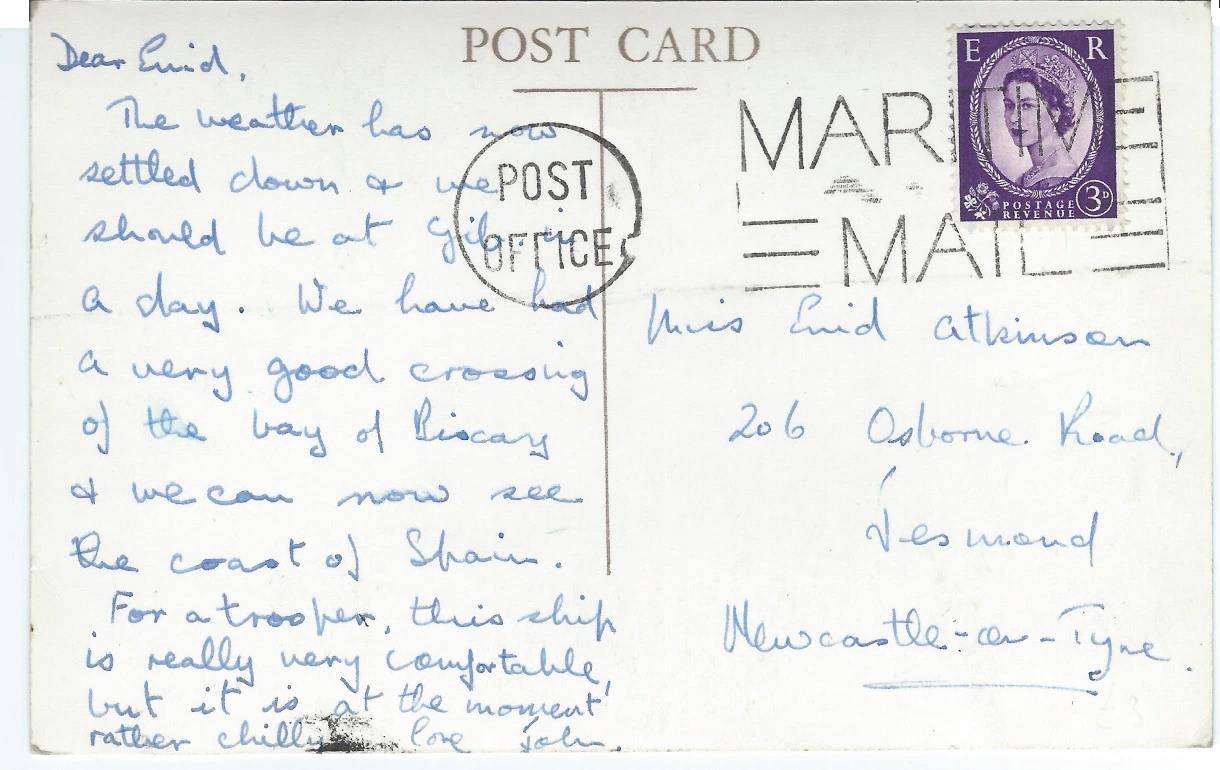 POST CARD
Dear Enid,
The weather has now
settled down & we
should be at Gib. in
a day. We have had
a very good crossing
of the bay of Biscay
& we can now see
the coast of Spain.
For a trooper, this ship
is really very comfortable,
but it is at the moment
rather chilly love John.
POST
OFFICE
MARITIME
MAIL
E R
POSTAGE
REVENUE
3D
Miss Enid Atkinson
206 Osborne Road,
Jesmond
Newcastle-on-Tyne.